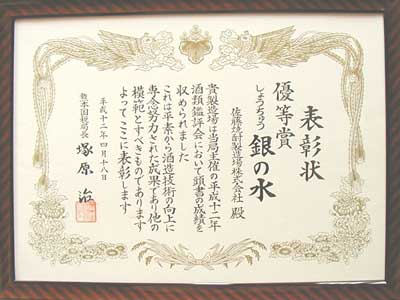 表彰状
優等賞
しょうちゅう 銀の水
佐藤焼酎製造場株式会社 殿
貴製造場は当局主催の平成十二年
酒類鑑評会において頭書の成績を
収められました
これは平素から酒造技術の向上に
専念努力された成果であり他の
模範とすべきものであります
よってここに表彰します
平成十二年四月十八日
熊本国税局長
塚原 治